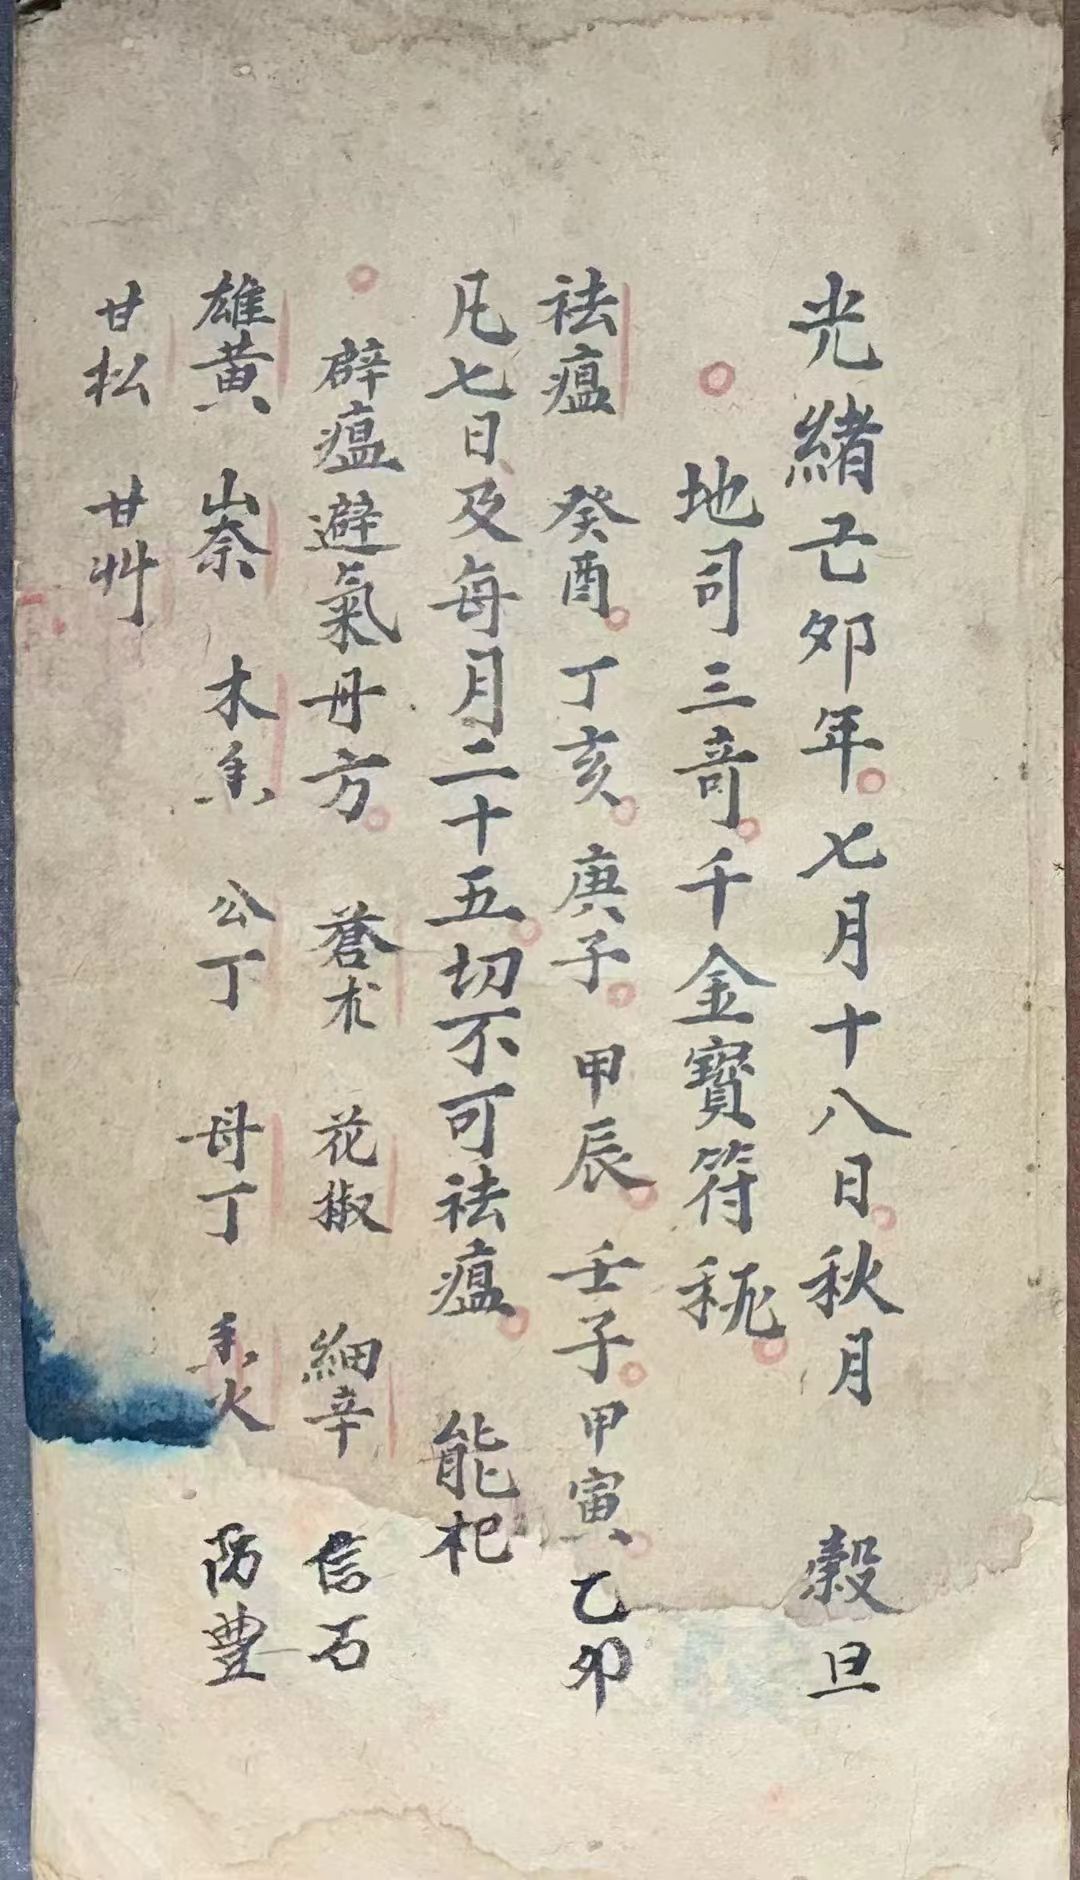 光緒己卯年七月十八日秋月 穀旦
地司三奇千金寶符秘
祛瘟 癸酉 丁亥 庚子 甲辰 壬子 甲寅 乙卯
凡七日及每月二十五切不可祛瘟 能杞
辟瘟避氣毋方 蒼朮 花椒 細辛 信石
雄黃 山奈 木香 公丁 母丁 香火 防豐
甘松 甘艸